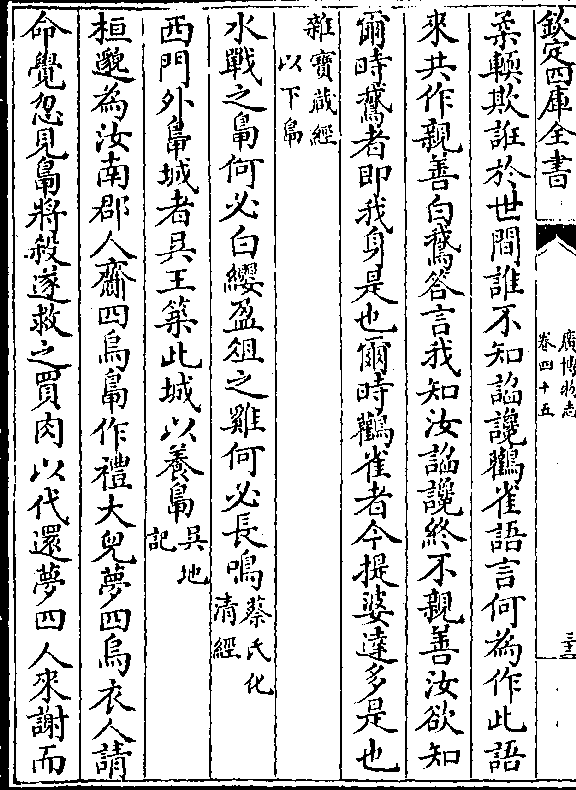 欽定四庫全書
廣博物志
卷四十五
三十三
柔輭欺誑於世間誰不知諂讒鸛雀語言何為作此語
來共作親善白鵞答言我知汝諂讒終不親善汝欲知
爾時鵞者即我身是也爾時鸛雀者今提婆達多是也
雜寶蔵經
以下鳧
水戰之鳧何必白纓盈俎之雞何必長鳴蔡氏化
清經
西門外鳧城者吳王築此城以養鳧吳地
記
桓邈為汝南郡人齎四烏鳧作禮大兒夢四烏衣人請
命覺忽見鳧將殺遂救之買肉以代還夢四人來謝而